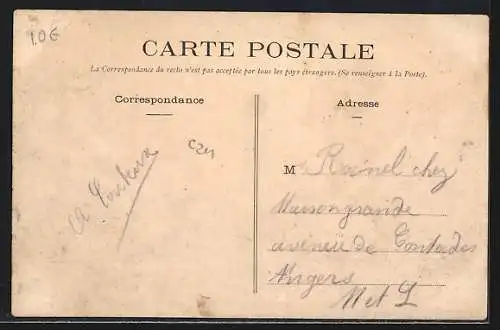 10€
CARTE POSTALE
La Correspondance du recto n'est pas acceptée par tous les pays étrangers. (Se renseigner à la Poste).
Correspondance
Adresse
M Ravnel chez
Maisongrande
avenue de Contades
Angers
M et L